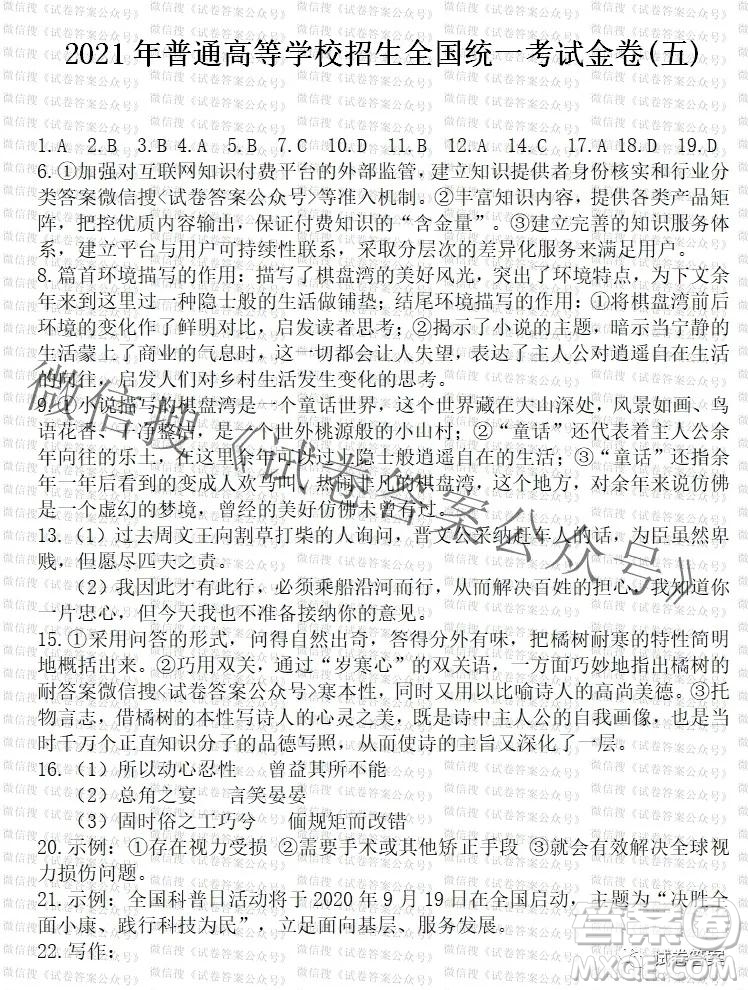 2021年普通高等学校招生全国统一考试金卷(五)
1.A 2.B 3.B 4.A 5.B 7.C 10.D 11.B 12.A 14.C 17.A 18.D 19.D
6.①加强对互联网知识付费平台的外部监管，建立知识提供者身份核实和行业分
类答案微信搜<试卷答案公众号>等准入机制。②丰富知识内容，提供各类产品矩
阵，把控优质内容输出，保证付费知识的“含金量”。③建立完善的知识服务体
系，建立平台与用户可持续性联系，采取分层次的差异化服务来满足用户。
8.篇首环境描写的作用：描写了棋盘湾的美好风光，突出了环境特点，为下文余
年来到这里过一种隐士般的生活做铺垫；结尾环境描写的作用：①将棋盘湾前后
环境的变化作了鲜明对比，启发读者思考；②揭示了小说的主题，暗示当宁静的
生活蒙上了商业的气息时，这一切都会让人失望，表达了主人公对逍遥自在生活
的向往，启发人们对乡村生活发生变化的思考。
9.①小说描写的棋盘湾是一个童话世界，这个世界藏在大山深处，风景如画、鸟
语花香、干净整洁，是一个世外桃源般的小山村；②“童话”还代表着主人公余
年向往的乐土，在这里余年可以过上隐士般逍遥自在的生活；③“童话”还指余
年后来看到的变成人欢马叫、热闹非凡的棋盘湾，这个地方，对余年来说仿佛
是一个虚幻的梦境，曾经的美好仿佛未曾有过。
13.（1）过去周文王向割草打柴的人询问，晋文公采纳赶车人的话，为臣虽然卑
贱，但愿尽匹夫之责。
（2）我因此才有此行，必须乘船沿河而行，从而解决百姓的担心，我知道你
一片忠心，但今天我也不准备接纳你的意见。
15.①采用问答的形式，问得自然出奇，答得分外有味，把橘树耐寒的特性简明
地概括出来。②巧用双关，通过“岁寒心”的双关语，一方面巧妙地指出橘树的
耐答案微信搜<试卷答案公众号>寒本性，同时又用以比喻诗人的高尚美德。③托
物言志，借橘树的本性写诗人的心灵之美，既是诗中主人公的自我画像，也是当
时千万个正直知识分子的品德写照，从而使诗的主旨又深化了一层。
16.（1）所以动心忍性 曾益其所不能
（2）总角之宴 言笑晏晏
（3）固时俗之工巧兮 偭规矩而改错
20.示例：①存在视力受损 ②需要手术或其他矫正手段 ③就会有效解决全球视
力损伤问题。
21.示例：全国科普日活动将于2020年9月19日在全国启动，主题为“决胜全
面小康、践行科技为民”，立足面向基层、服务发展。
22.写作：
微信搜《试卷答案公众号》
答案圈
试卷答案